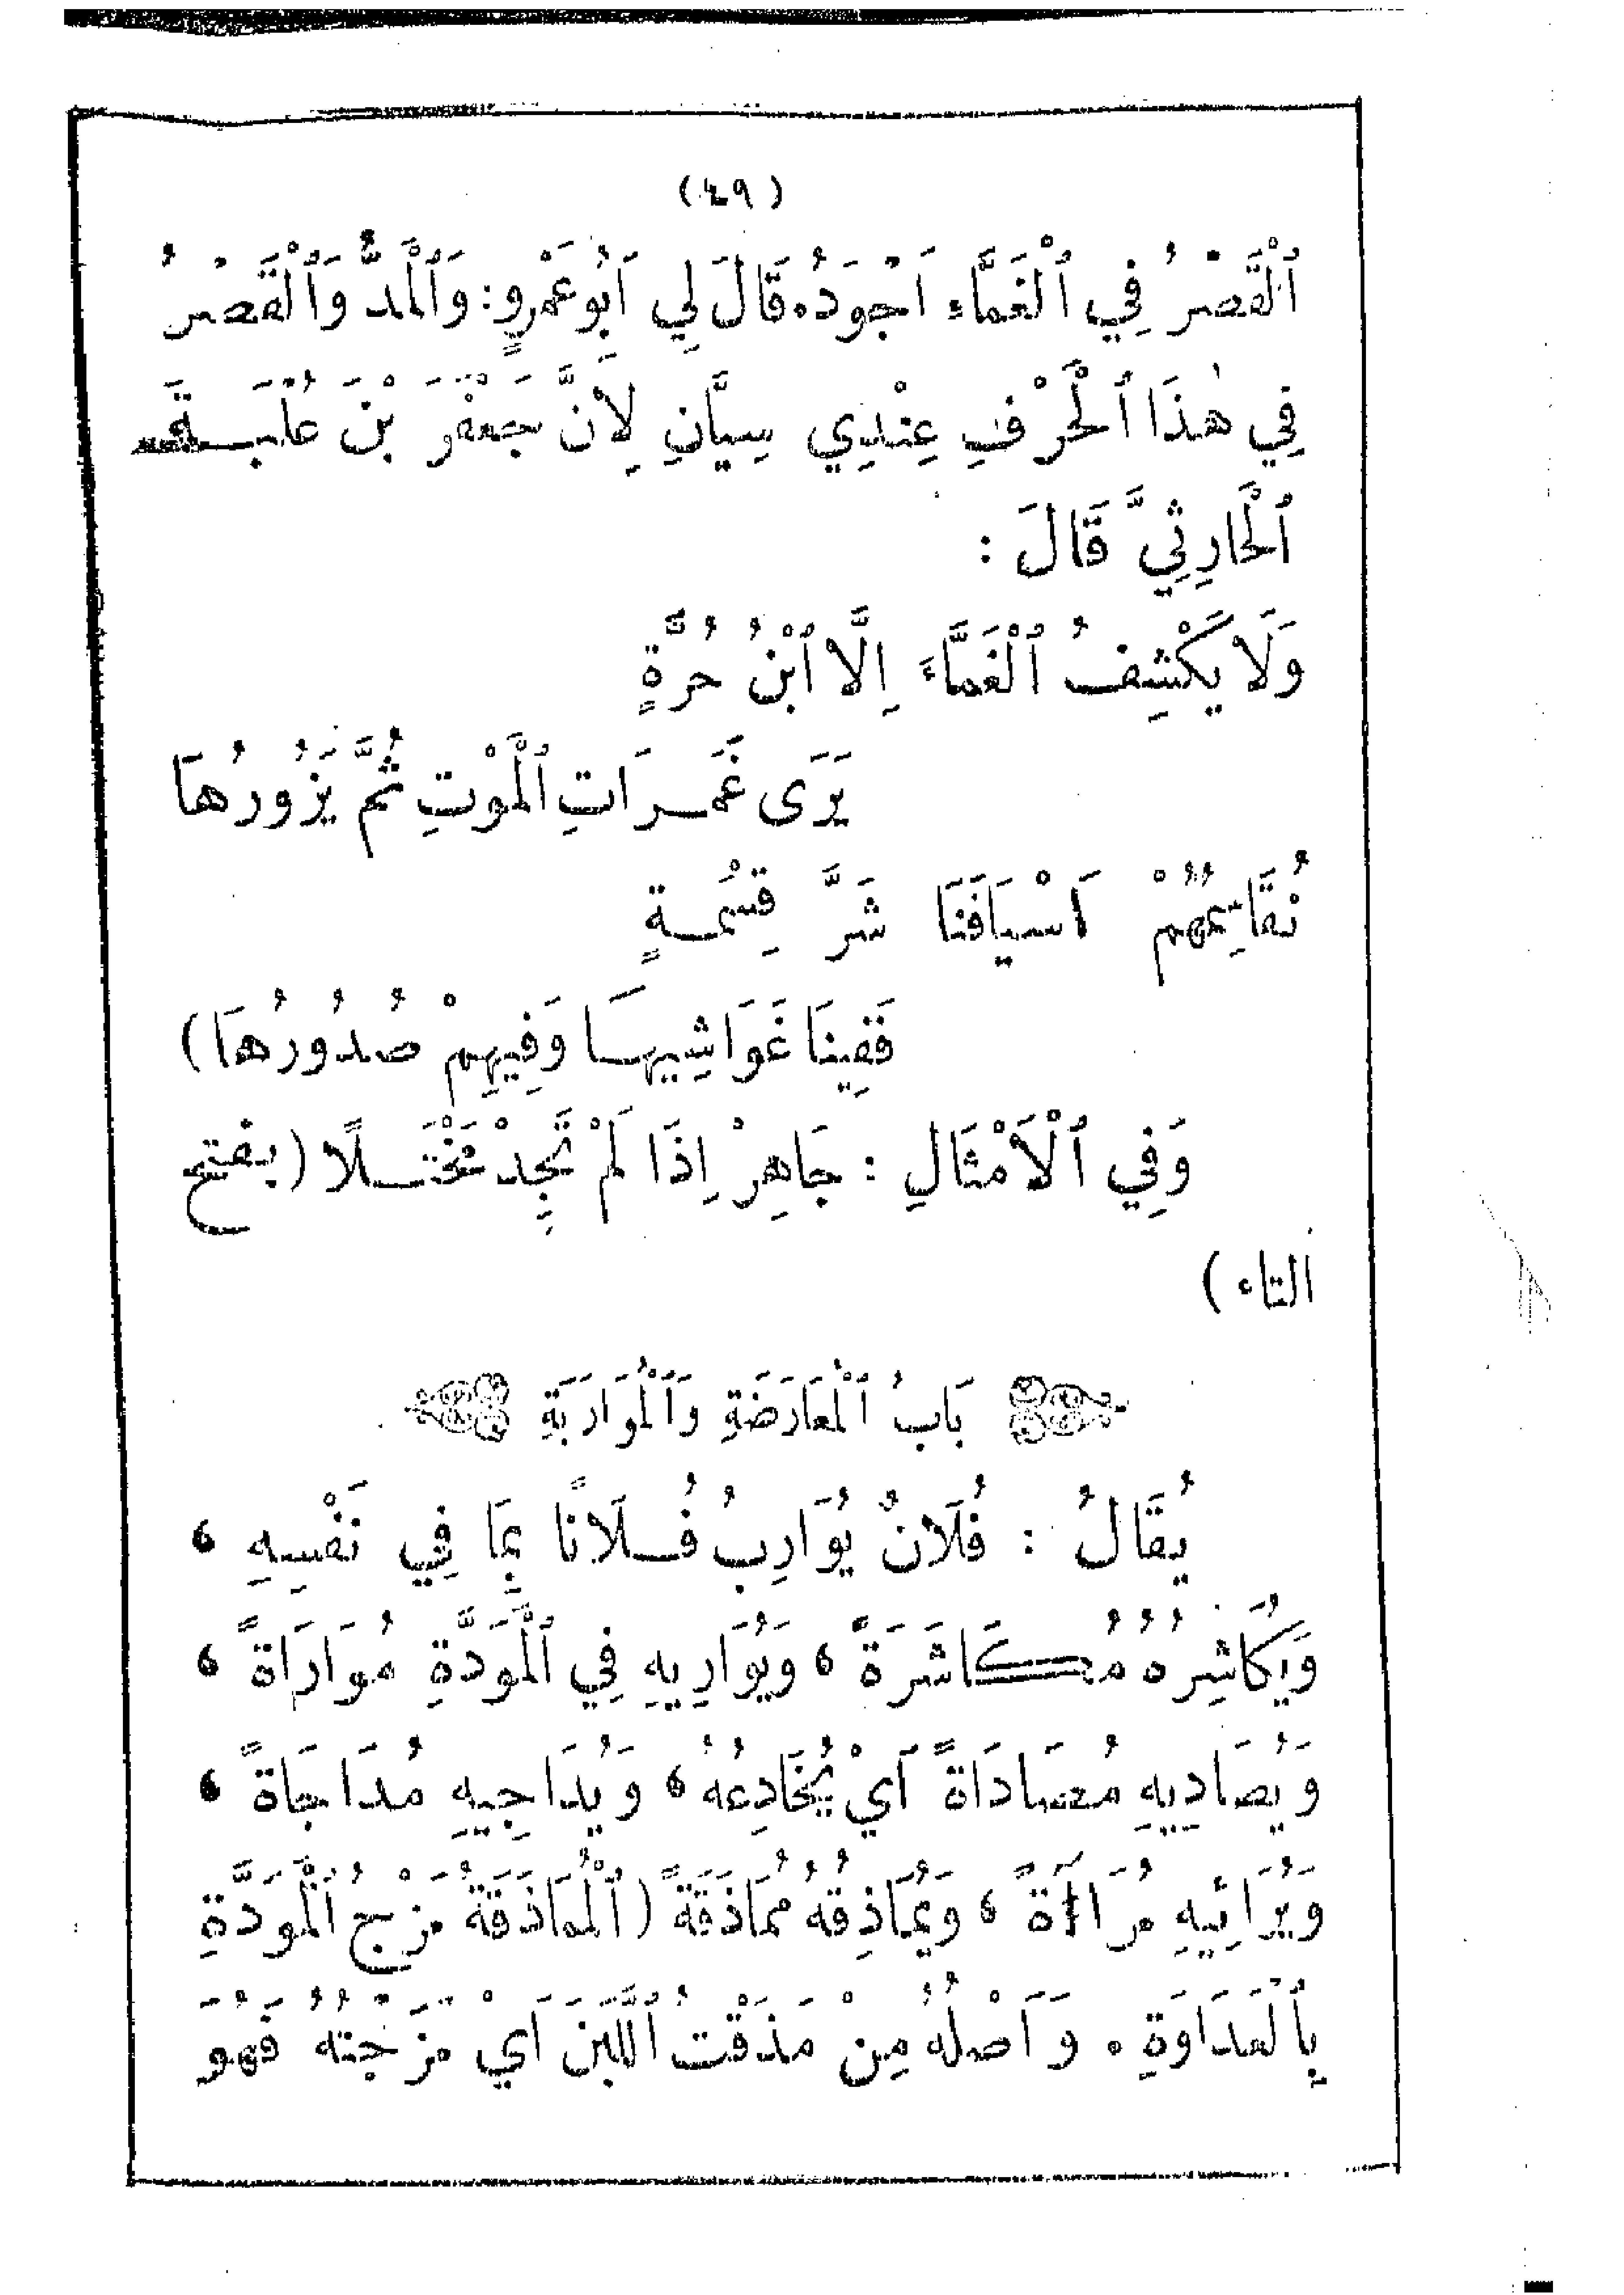 (٤٩)
ٱلْقَصْرُ فِي ٱلْغَمَّاءِ اَجْوَدُ. قَالَ لِي اَبُو عَمْرٍو: وَٱلْمَدُّ وَٱلْقَصْرُ
فِي هٰذَا ٱلْحَرْفِ عِنْدِي سِيَّانِ لِاَنَّ جَعْفَرَ بْنَ عُلْبَةَ
ٱلْحَارِثِيَّ قَالَ :
وَلَا يَكْشِفُ ٱلْغَمَّاءَ اِلَّا ٱبْنُ حُرَّةٍ
يَرَى غَمَرَاتِ ٱلْمَوْتِ ثُمَّ يَزُورُهَا
نُقَاسِمُهُمْ اَسْيَافَنَا شَرَّ قِسْمَةٍ
فَفِينَا غَوَاشِيهَا وَفِيهِمْ صُدُورُهَا)
وَفِي ٱلْاَمْثَالِ : جَاهِرْ اِذَا لَمْ تَجِدْ مَخْتَلًا (بفتح
التاء)
بَابُ ٱلْمُعَارَضَةِ وَٱلْمُوَارَبَةِ
يُقَالُ : فُلَانٌ يُوَارِبُ فُلَانًا بِمَا فِي نَفْسِهِ ،
وَيُكَاشِرُهُ مُكَاشَرَةً ، وَيُوَارِيهِ فِي ٱلْمَوَدَّةِ مُوَارَاةً ،
وَيُصَادِيهِ مُصَادَاةً اَيْ يُخَادِعُهُ ، وَيُدَاجِيهِ مُدَاجَاةً ،
وَيُرَائِيهِ مُرَاآةً ، وَيُمَاذِقُهُ مُمَاذَقَةً (ٱلْمُمَاذَقَةُ مَزْجُ ٱلْمَوَدَّةِ
بِٱلْعَدَاوَةِ . وَاَصْلُهُ مِنْ مَذَقْتُ ٱللَّبَنَ اَيْ مَزَجْتُهُ فَهُوَ